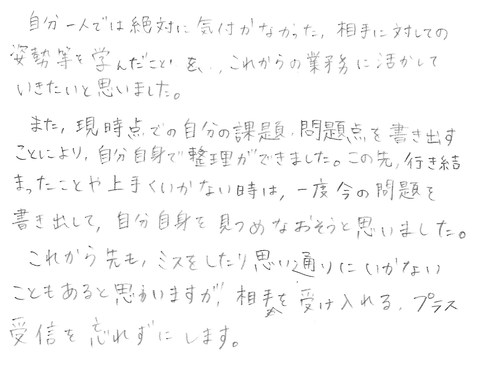 自分一人では絶対に気付かなかった、相手に対しての
姿勢等を学んだことを、、これからの業務に活かして
いきたいと思いました。
また、現時点での自分の課題、問題点を書き出す
ことにより、自分自身で整理ができました。この先、行き結
まったことや上手くいかない時は、一度今の問題を
書き出して、自分自身を見つめなおそうと思いました。
これから先も、ミスをしたり思い通りにいかない
こともあると思いますが、相手を受け入れる、プラス
受信を忘れずにします。